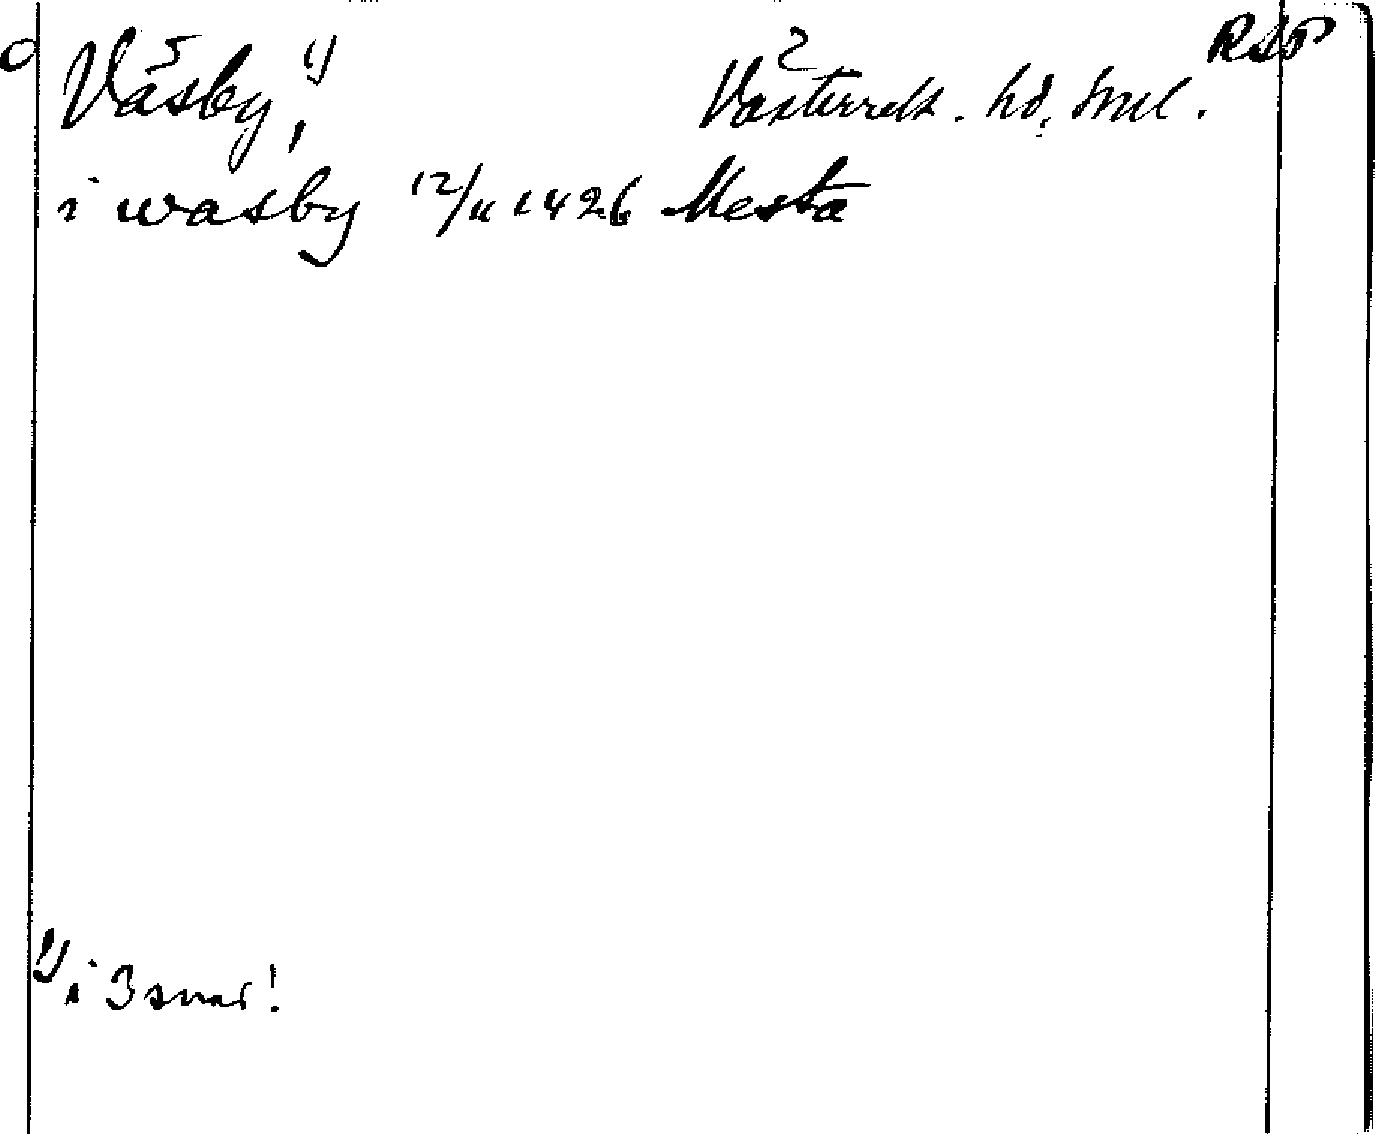 Väsby, 1) Västerrek. hd, Sml. RAP
i wasby 12/11 1426 Mesta
1) i 3 snar!